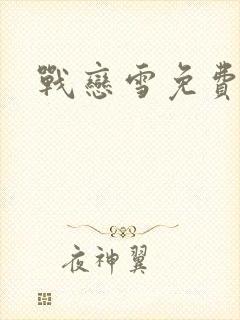 戰戀雪免費
夜神翼